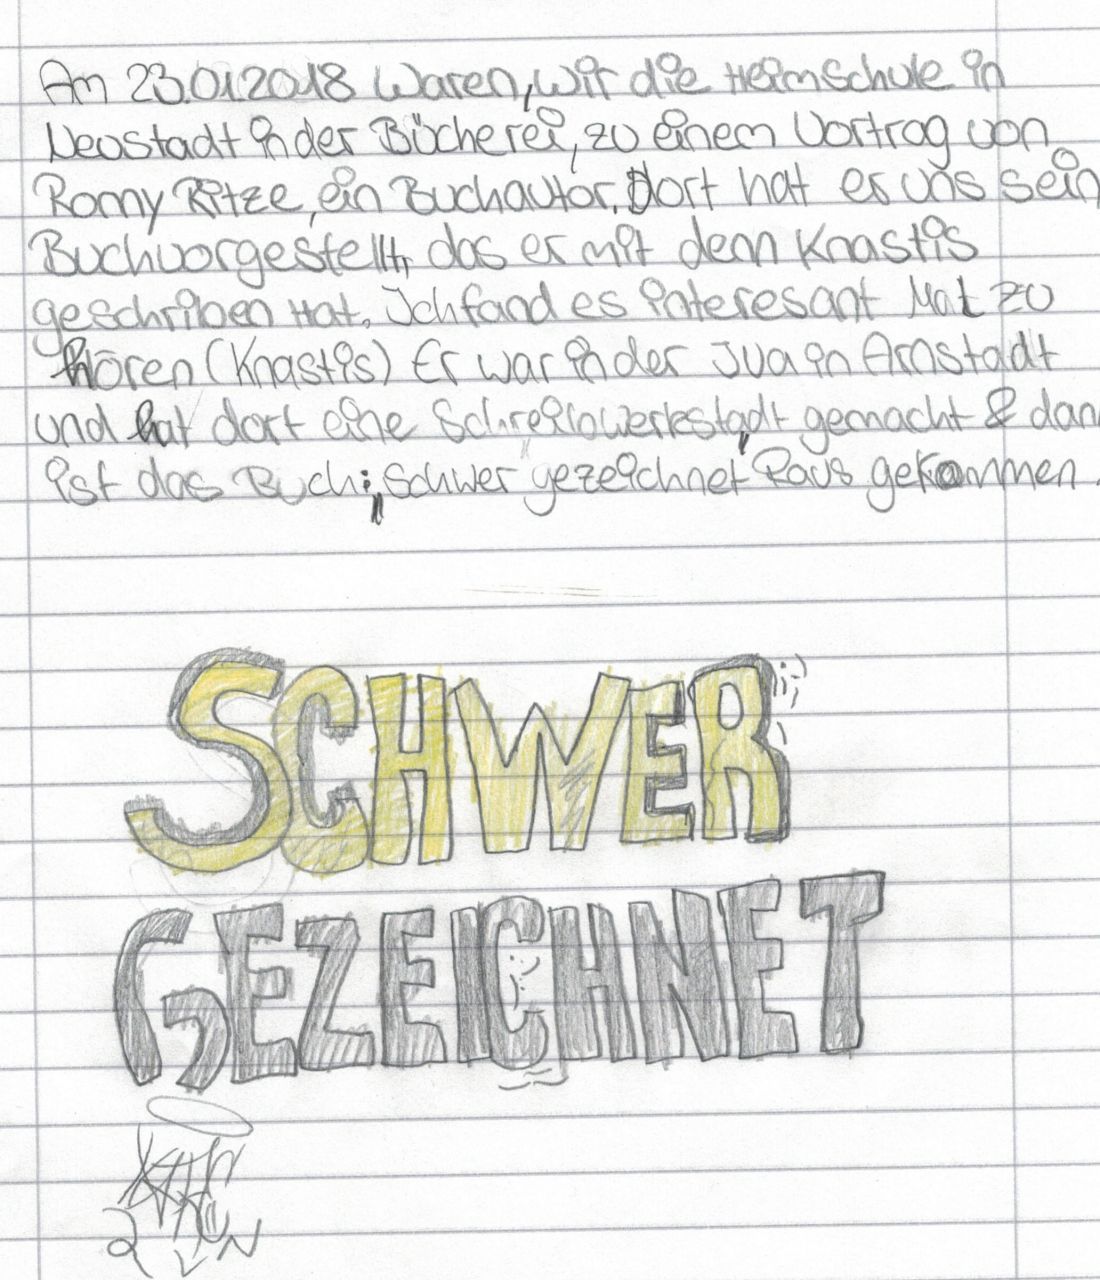 Am 23.01.2018 Waren, wir die Heimschule in
Neustadt in der Bücherei, zu einem Vortrag von
Romy Ritze, ein Buchautor. Dort hat er uns sein
Buch vorgestellt, das er mit denn Knastis
geschriben Hat. Ich fand es interesant Mal zu
hören (Knastis) Er war in der JVA in Arnstadt
und hat dort eine Schreibwerkstadt gemacht & dan
ist das Buch: „Schwer gezeichnet" Raus gekommen.
SCHWER
GEZEICHNET